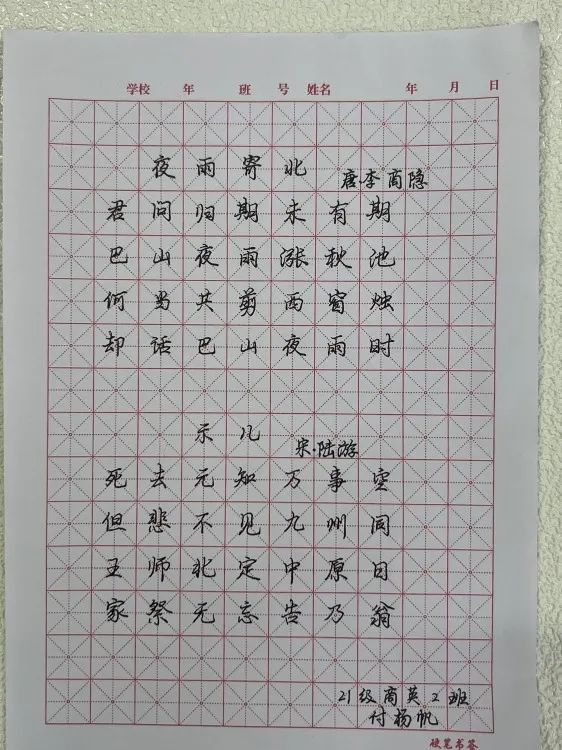 学校 年 班 号 姓名 年 月 日
夜雨寄北 唐·李商隐
君问归期未有期
巴山夜雨涨秋池
何当共剪西窗烛
却话巴山夜雨时
示儿 宋·陆游
死去元知万事空
但悲不见九州同
王师北定中原日
家祭无忘告乃翁
21级商英2班
付杨帆
硬笔书签